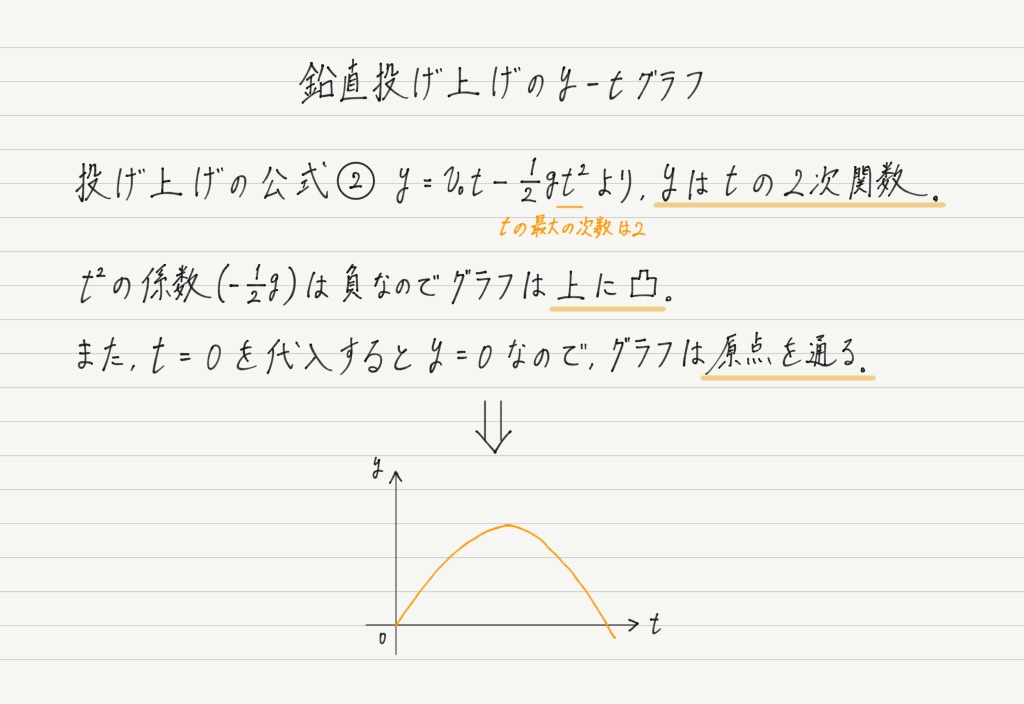 鉛直投げ上げのy-tグラフ
投げ上げの公式② y = v₀t - 1/2 gt² より, y は t の 2次関数。
tの最大の次数は2
t²の係数(-1/2 g)は負なのでグラフは上に凸。
また, t = 0 を代入すると y = 0 なので, グラフは原点を通る。
⇓
y
0
t